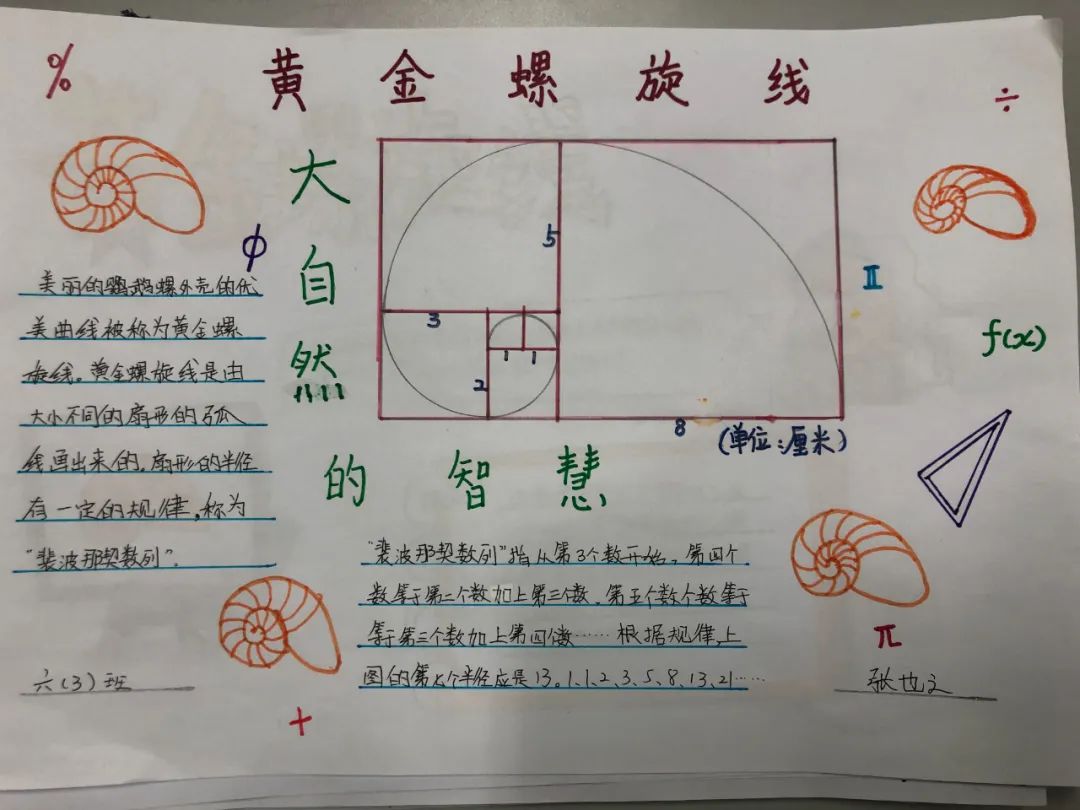 %
黄金螺旋线
÷
大自然
的智慧
φ
美丽的鹦鹉螺外壳的优
美曲线被称为黄金螺
旋线。黄金螺旋线是由
大小不同的扇形的弧
线画出来的,扇形的半径
有一定的规律,称为
“裴波那契数列”.
5
3
1 1
2
8
(单位:厘米)
Ⅱ
f(x)
“裴波那契数列”指从第3个数开始,第四个
数等于第二个数加上第三个数.第五个数个数等于
等于第三个数加上第四个数……根据规律,上
图的第七个半径应是13。1、1、2、3、5、8、13、21……
π
六(3)班
+
张也